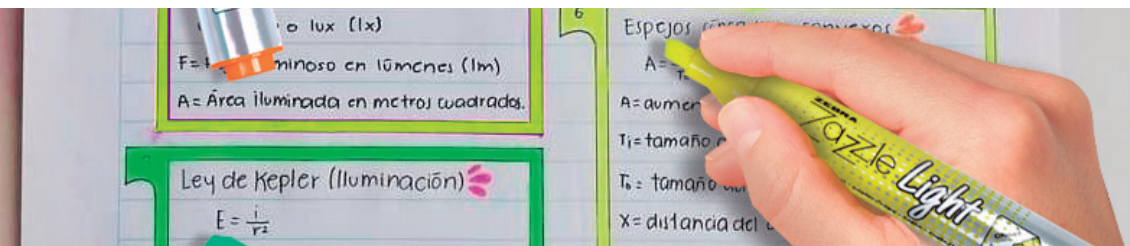 o lux (lx)
F= minoso en lúmenes (lm)
A= Área iluminada en metros cuadrados.
Ley de Kepler (Iluminación)
E = i
r²
6
Espejos
A=
A= aumen
Ti= tamaño
To= tamaño
X= distancia del
ZEBRA
Zazzle
Light